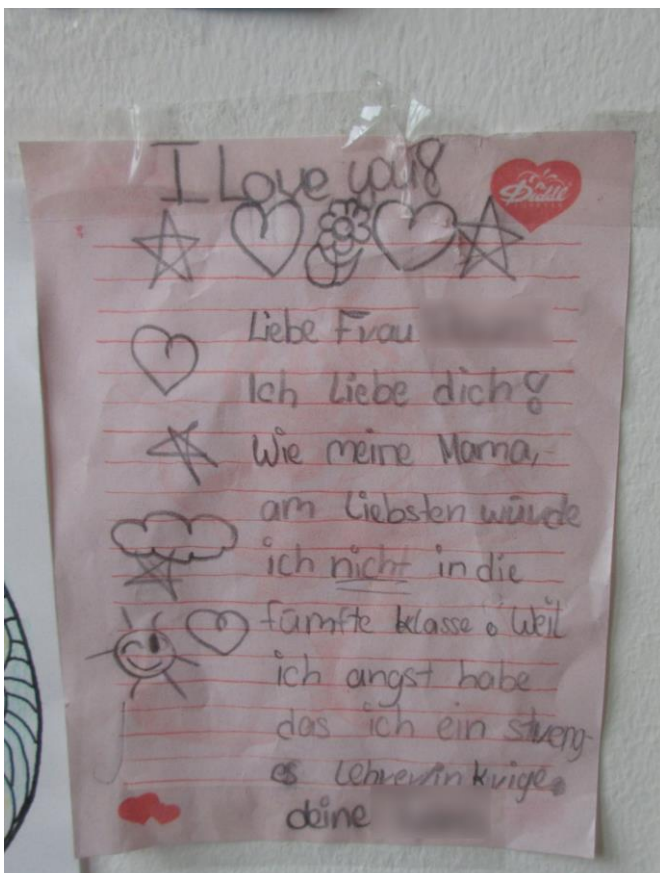 I Love you!
Diddl
Liebe Frau
Ich Liebe dich!
Wie meine Mama,
am Liebsten würde
ich nicht in die
fümfte klasse. Weil
ich angst habe
das ich ein streng-
es Lehrerin krige.
deine